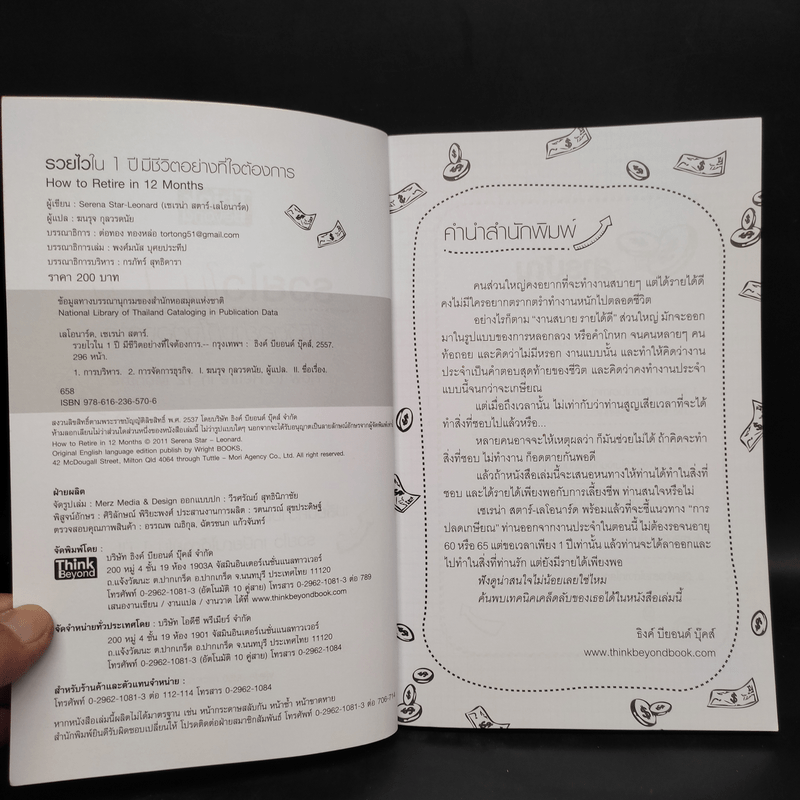 รวยไวใน 1 ปี มีชีวิตอย่างที่ใจต้องการ
How to Retire in 12 Months
ผู้เขียน : Serena Star-Leonard (เซเรน่า สตาร์-เลโอนาร์ด)
ผู้แปล : ฆนรุจ กุลวรดนัย
บรรณาธิการ : ต่อทอง ทองหล่อ tortong51@gmail.com
บรรณาธิการเล่ม : พงศ์มนัส บุศยประทีป
บรรณาธิการบริหาร : กรภัทร์ สุทธิดารา
ราคา 200 บาท
ข้อมูลทางบรรณานุกรมของสำนักหอสมุดแห่งชาติ
National Library of Thailand Cataloging in Publication Data
เลโอนาร์ด, เซเรน่า สตาร์.
รวยไวใน 1 ปี มีชีวิตอย่างที่ใจต้องการ.-- กรุงเทพฯ : ธิงค์ บียอนด์ บุ๊คส์, 2557.
296 หน้า.
1. การบริหาร. 2. การจัดการธุรกิจ. I. ฆนรุจ กุลวรดนัย, ผู้แปล. II. ชื่อเรื่อง.
658
ISBN 978-616-236-570-6
สงวนลิขสิทธิ์ตามพระราชบัญญัติลิขสิทธิ์ พ.ศ. 2537 โดยบริษัท ธิงค์ บียอนด์ บุ๊คส์ จำกัด
ห้ามลอกเลียนไม่ว่าส่วนใดส่วนหนึ่งของหนังสือเล่มนี้ ไม่ว่ารูปแบบใดๆ นอกจากจะได้รับอนุญาตเป็นลายลักษณ์อักษรจากผู้จัดพิมพ์เท่านั้น
How to Retire in 12 Months © 2011 Serena Star – Leonard.
Original English language edition publish by Wright BOOKS.
42 McDougall Street, Milton Qld 4064 through Tuttle – Mori Agency Co., Ltd. All rights reserved.
ฝ่ายผลิต
จัดรูปเล่ม : Merz Media & Design ออกแบบปก : วีรศรัณย์ สุทธินิภาชัย
พิสูจน์อักษร : ศิริลักษณ์ พิริยะพงศ์ ประสานงานการผลิต : รตนภรณ์ สุขประดิษฐ์
ตรวจสอบคุณภาพสินค้า : อรรณพ ณธิกุล, ฉัตรชนก แก้วจันทร์
จัดพิมพ์โดย :
Think
Beyond
บริษัท ธิงค์ บียอนด์ บุ๊คส์ จำกัด
200 หมู่ 4 ชั้น 19 ห้อง 1903A จัสมินอินเตอร์เนชั่นแนลทาวเวอร์
ถ.แจ้งวัฒนะ ต.ปากเกร็ด อ.ปากเกร็ด จ.นนทบุรี ประเทศไทย 11120
โทรศัพท์ 0-2962-1081-3 (อัตโนมัติ 10 คู่สาย) โทรสาร 0-2962-1081-3 ต่อ 789
เสนองานเขียน / งานแปล / งานวาด ได้ที่ www.thinkbeyondbook.com
จัดจำหน่ายทั่วประเทศโดย : บริษัท ไอดีซี พรีเมียร์ จำกัด
200 หมู่ 4 ชั้น 19 ห้อง 1901 จัสมินอินเตอร์เนชั่นแนลทาวเวอร์
ถ.แจ้งวัฒนะ ต.ปากเกร็ด อ.ปากเกร็ด จ.นนทบุรี ประเทศไทย 11120
โทรศัพท์ 0-2962-1081-3 (อัตโนมัติ 10 คู่สาย) โทรสาร 0-2962-1084
สำหรับร้านค้าและตัวแทนจำหน่าย :
โทรศัพท์ 0-2962-1081-3 ต่อ 112-114 โทรสาร 0-2962-1084
หากหนังสือเล่มนี้ผลิตไม่ได้มาตรฐาน เช่น หน้ากระดาษสลับกัน หน้าซ้ำ หน้าขาดหาย
สำนักพิมพ์ยินดีรับผิดชอบเปลี่ยนให้ โปรดติดต่อฝ่ายสมาชิกสัมพันธ์ โทรศัพท์ 0-2962-1081-3 ต่อ 706-714
คำนำสำนักพิมพ์
คนส่วนใหญ่คงอยากที่จะทำงานสบายๆ แต่ได้รายได้ดี
คงไม่มีใครอยากตรากตรำทำงานหนักไปตลอดชีวิต
อย่างไรก็ตาม “งานสบาย รายได้ดี” ส่วนใหญ่ มักจะออก
มาในรูปแบบของการหลอกลวง หรือคำโกหก จนคนหลายๆ คน
ท้อถอย และคิดว่าไม่มีหรอก งานแบบนั้น และทำให้คิดว่างาน
ประจำเป็นคำตอบสุดท้ายของชีวิต และคิดว่าคงทำงานประจำ
แบบนี้จนกว่าจะเกษียณ
แต่เมื่อถึงเวลานั้น ไม่เท่ากับว่าท่านสูญเสียเวลาที่จะได้
ทำสิ่งที่ชอบไปแล้วหรือ...
หลายคนอาจจะให้เหตุผลว่า ก็มันช่วยไม่ได้ ถ้าคิดจะทำ
สิ่งที่ชอบ ไม่ทำงาน ก็อดตายกันพอดี
แล้วถ้าหนังสือเล่มนี้จะเสนอหนทางให้ท่านได้ทำในสิ่งที่
ชอบ และได้รายได้เพียงพอกับการเลี้ยงชีพ ท่านสนใจหรือไม่
เซเรน่า สตาร์-เลโอนาร์ด พร้อมแล้วที่จะชี้แนวทาง “การ
ปลดเกษียณ” ท่านออกจากงานประจำในตอนนี้ ไม่ต้องรอจนอายุ
60 หรือ 65 แต่ขอเวลาเพียง 1 ปีเท่านั้น แล้วท่านจะได้ลาออกและ
ไปทำในสิ่งที่ท่านรัก แต่ยังมีรายได้เพียงพอ
ฟังดูน่าสนใจไม่น้อยเลยใช่ไหม
ค้นพบเทคนิคเคล็ดลับของเธอได้ในหนังสือเล่มนี้
ธิงค์ บียอนด์ บุ๊คส์
www.thinkbeyondbook.com